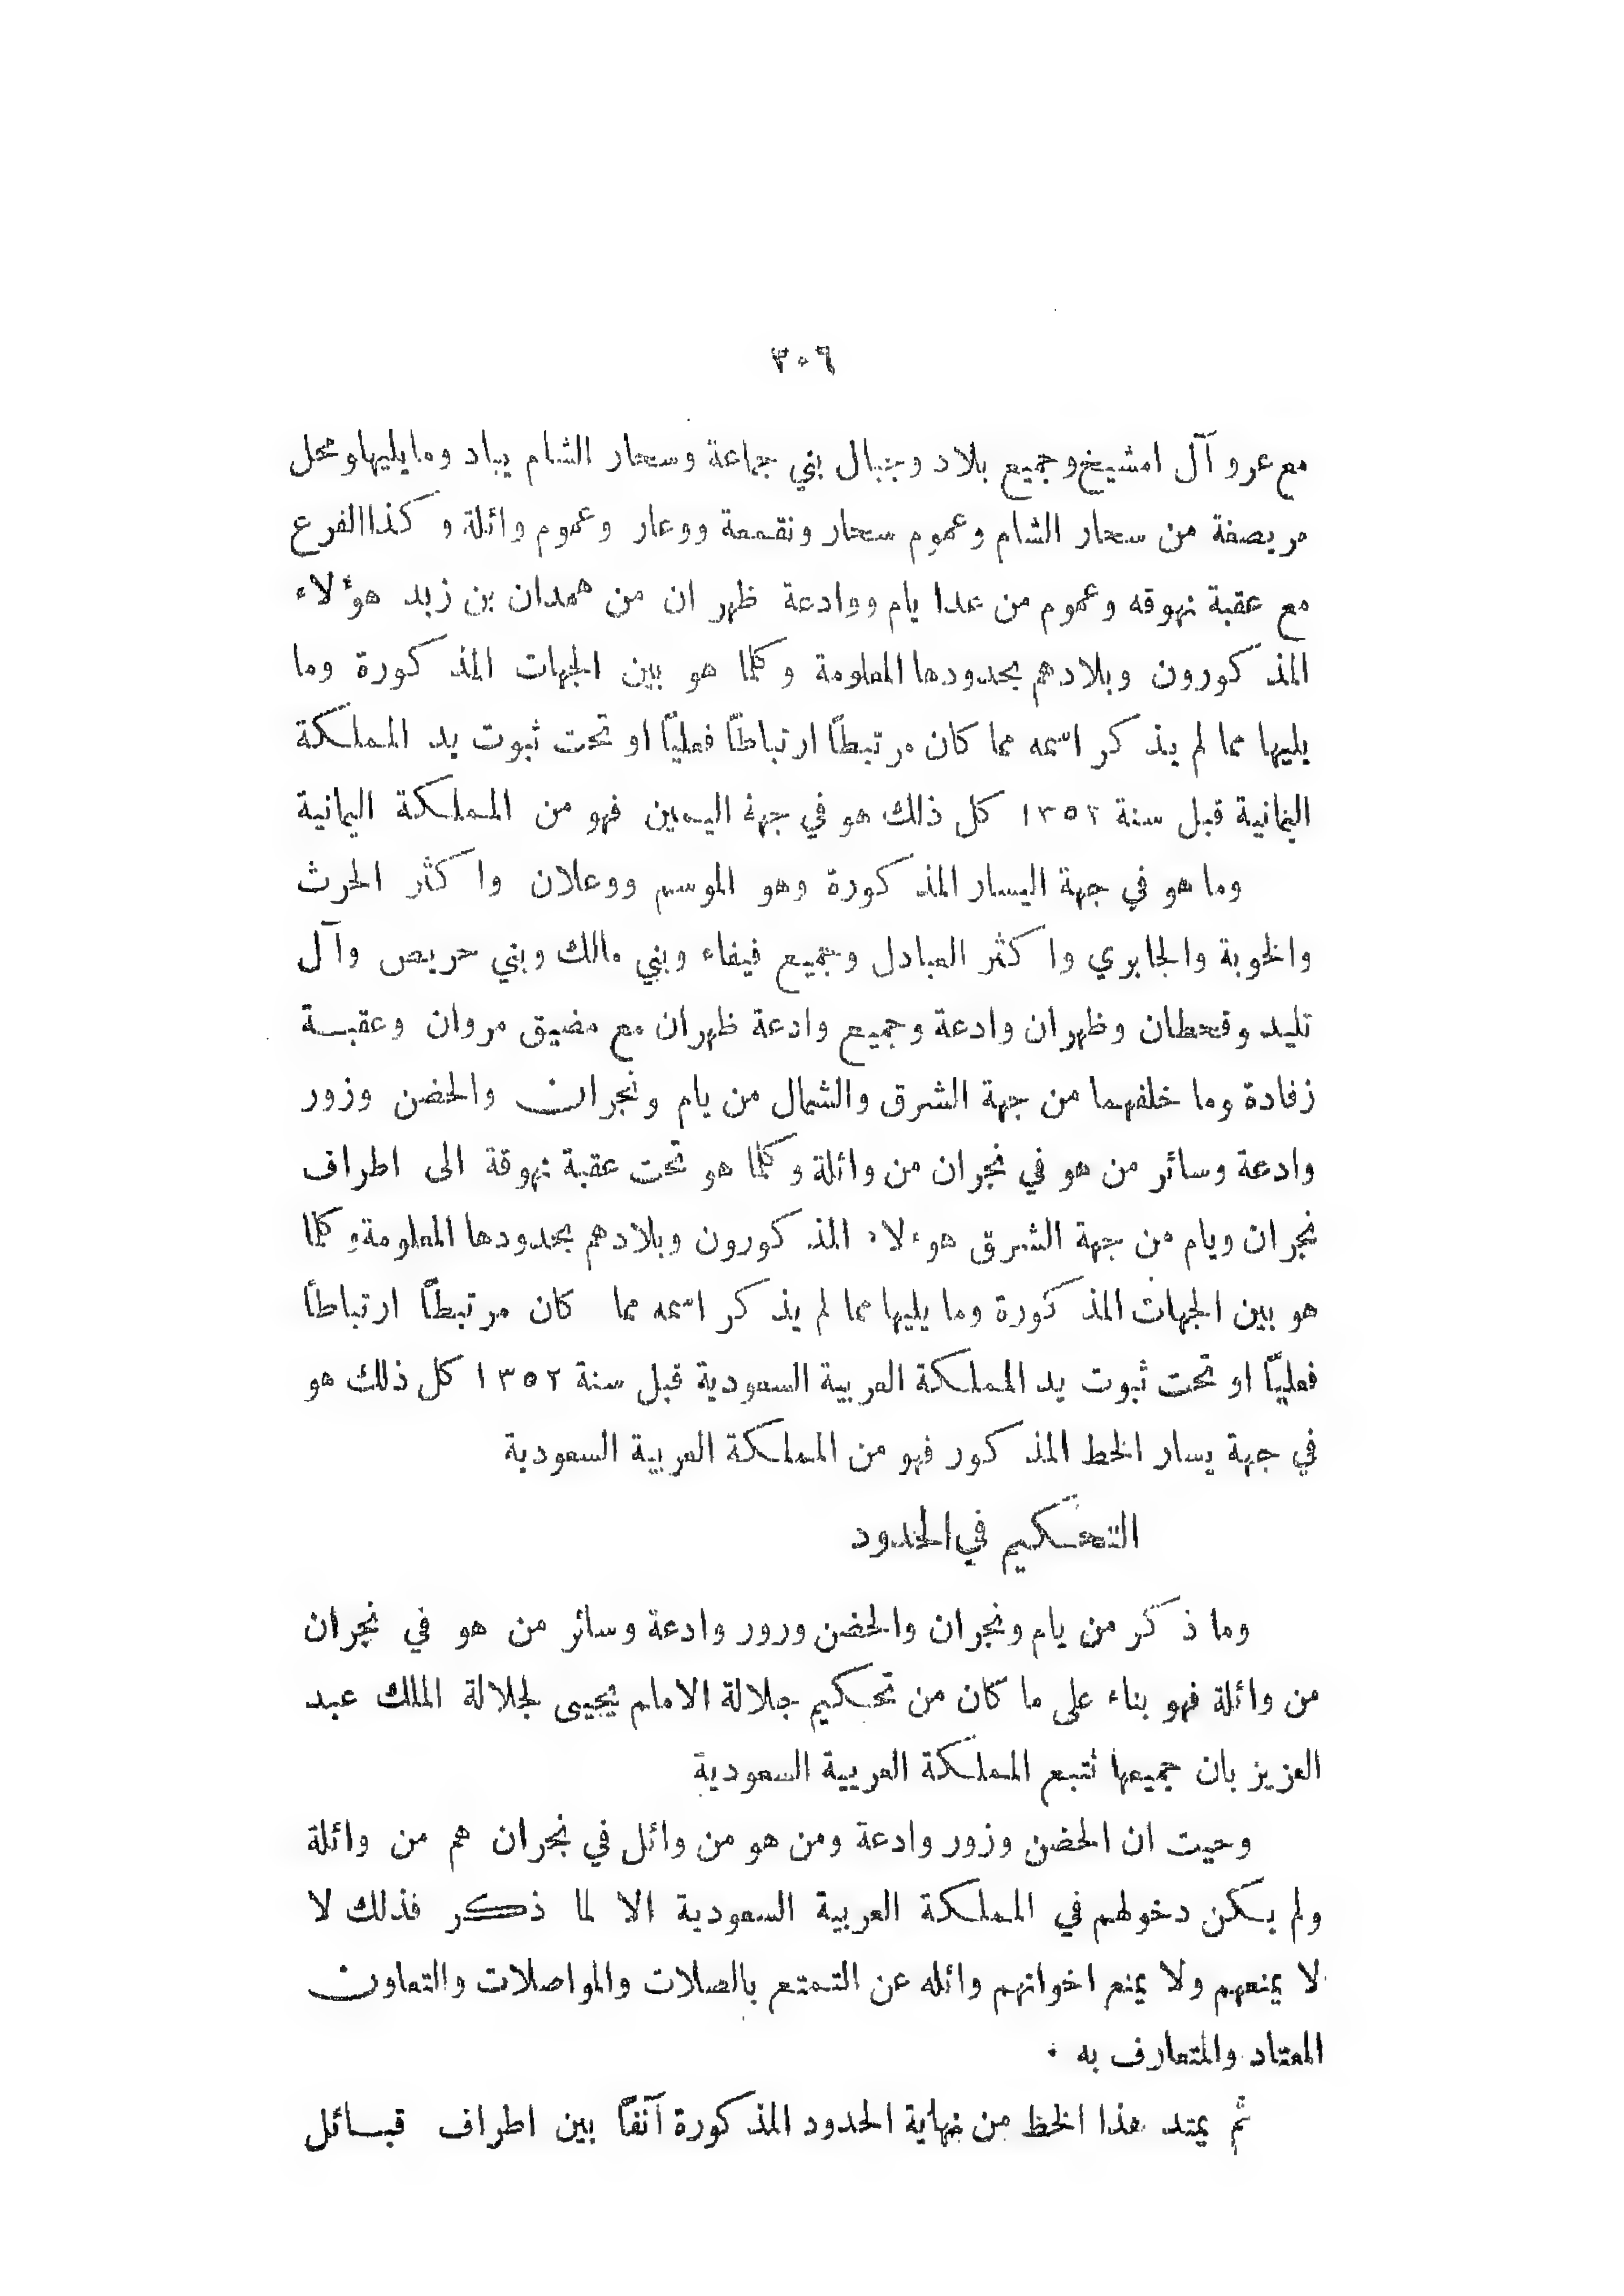 ٣٠٦
مع عرو آل امشيخ وجميع بلاد وجبال بني جماعة وسحار الشام يباد وما يليها ومحل
مريصغة من سحار الشام وعموم سحار ونقعة ووعار وعموم وائلة وكذا الفرع
مع عقبة نهوقه وعموم من عدا يام ووادعة ظهران من همدان بن زيد هؤلاء
المذكورون وبلادهم بحدودها المعلومة وكلما هو بين الجهات المذكورة وما
يليها مما لم يذكر اسمه مما كان مرتبطاً ارتباطاً فعلياً او تحت ثبوت يد المملكة
اليمانية قبل سنة ١٣٥٢ كل ذلك هو في جهة اليمين فهو من المملكة اليمانية
وما هو في جهة اليسار المذكورة وهو الموسم ووعلان واكثر الحرث
والخوبة والجابري واكثر العبادل وجميع فيفاء وبني مالك وبني حريص وآل
تليد وقحطان وظهران وادعة وجميع وادعة ظهران مع مضيق مروان وعقبة
زفادة وما خلفهما من جهة الشرق والشمال من يام ونجران والحضن وزور
وادعة وسائر من هو في نجران من وائلة وكلما هو تحت عقبة نهوقة الى اطراف
نجران ويام من جهة الشرق هوءلاء المذكورون وبلادهم بحدودها المعلومة وكلما
هو بين الجهات المذكورة وما يليها مما لم يذكر اسمه مما كان مرتبطاً ارتباطاً
فعلياً او تحت ثبوت يد المملكة العربية السعودية قبل سنة ١٣٥٢ كل ذلك هو
في جهة يسار الخط المذكور فهو من المملكة العربية السعودية
التحكيم في الحدود
وما ذكر من يام ونجران والحضن ورور وادعة وسائر من هو في نجران
من وائلة فهو بناء على ما كان من تحكيم جلالة الامام يحيى لجلالة الملك عبد
العزيز بان جميعها تتبع المملكة العربية السعودية
وحيت ان الحضن وزور وادعة ومن هو من وائل في نجران هم من وائلة
ولم يكن دخولهم في المملكة العربية السعودية الا لما ذكر فذلك لا
لا يمنعهم ولا يمنع اخوانهم وائله عن التمتع بالصلات والمواصلات والتعاون
المعتاد والمتعارف به ٠
ثم يمتد هذا الخط من نهاية الحدود المذكورة آنفاً بين اطراف قبائل